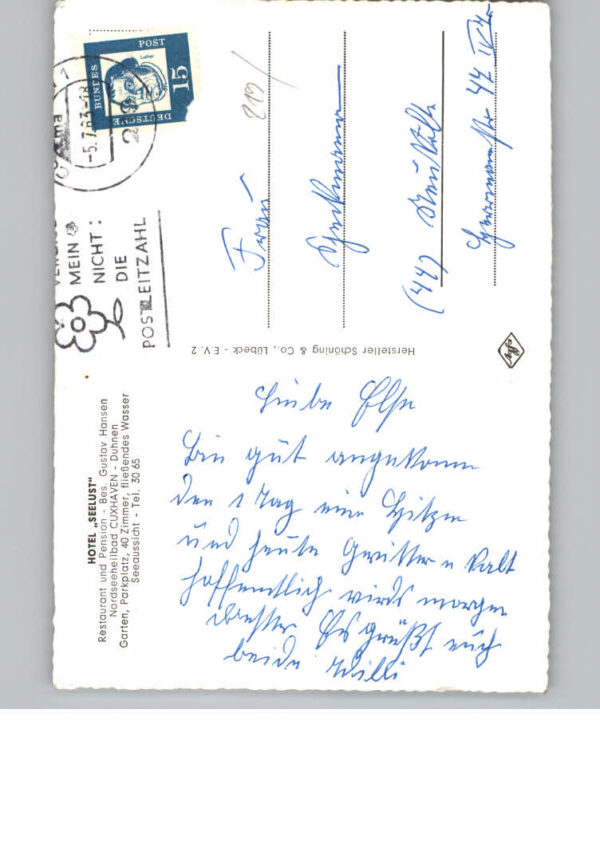 HOTEL „SEELUST"
Restaurant und Pension - Bes. Gustav Hansen
Nordseeheilbad CUXHAVEN - Duhnen
Garten, Parkplatz, 40 Zimmer, fließendes Wasser
Seeaussicht - Tel. 30 65
Liebe Else
Bin gut angekomm
den 1 Tag eine Hitze
und heute Gewitter u Kalt
hoffentlich wirds morgen
besser Es grüßt euch
beide Willi
Hersteller Schöning & Co., Lübeck - E.V. 2
MEIN
NICHT:
DIE
POSTLEITZAHL
-5.7.63-18
DEUTSCHE
BUNDES
POST
15
Luther
219/
Frau
(44)
44 IV